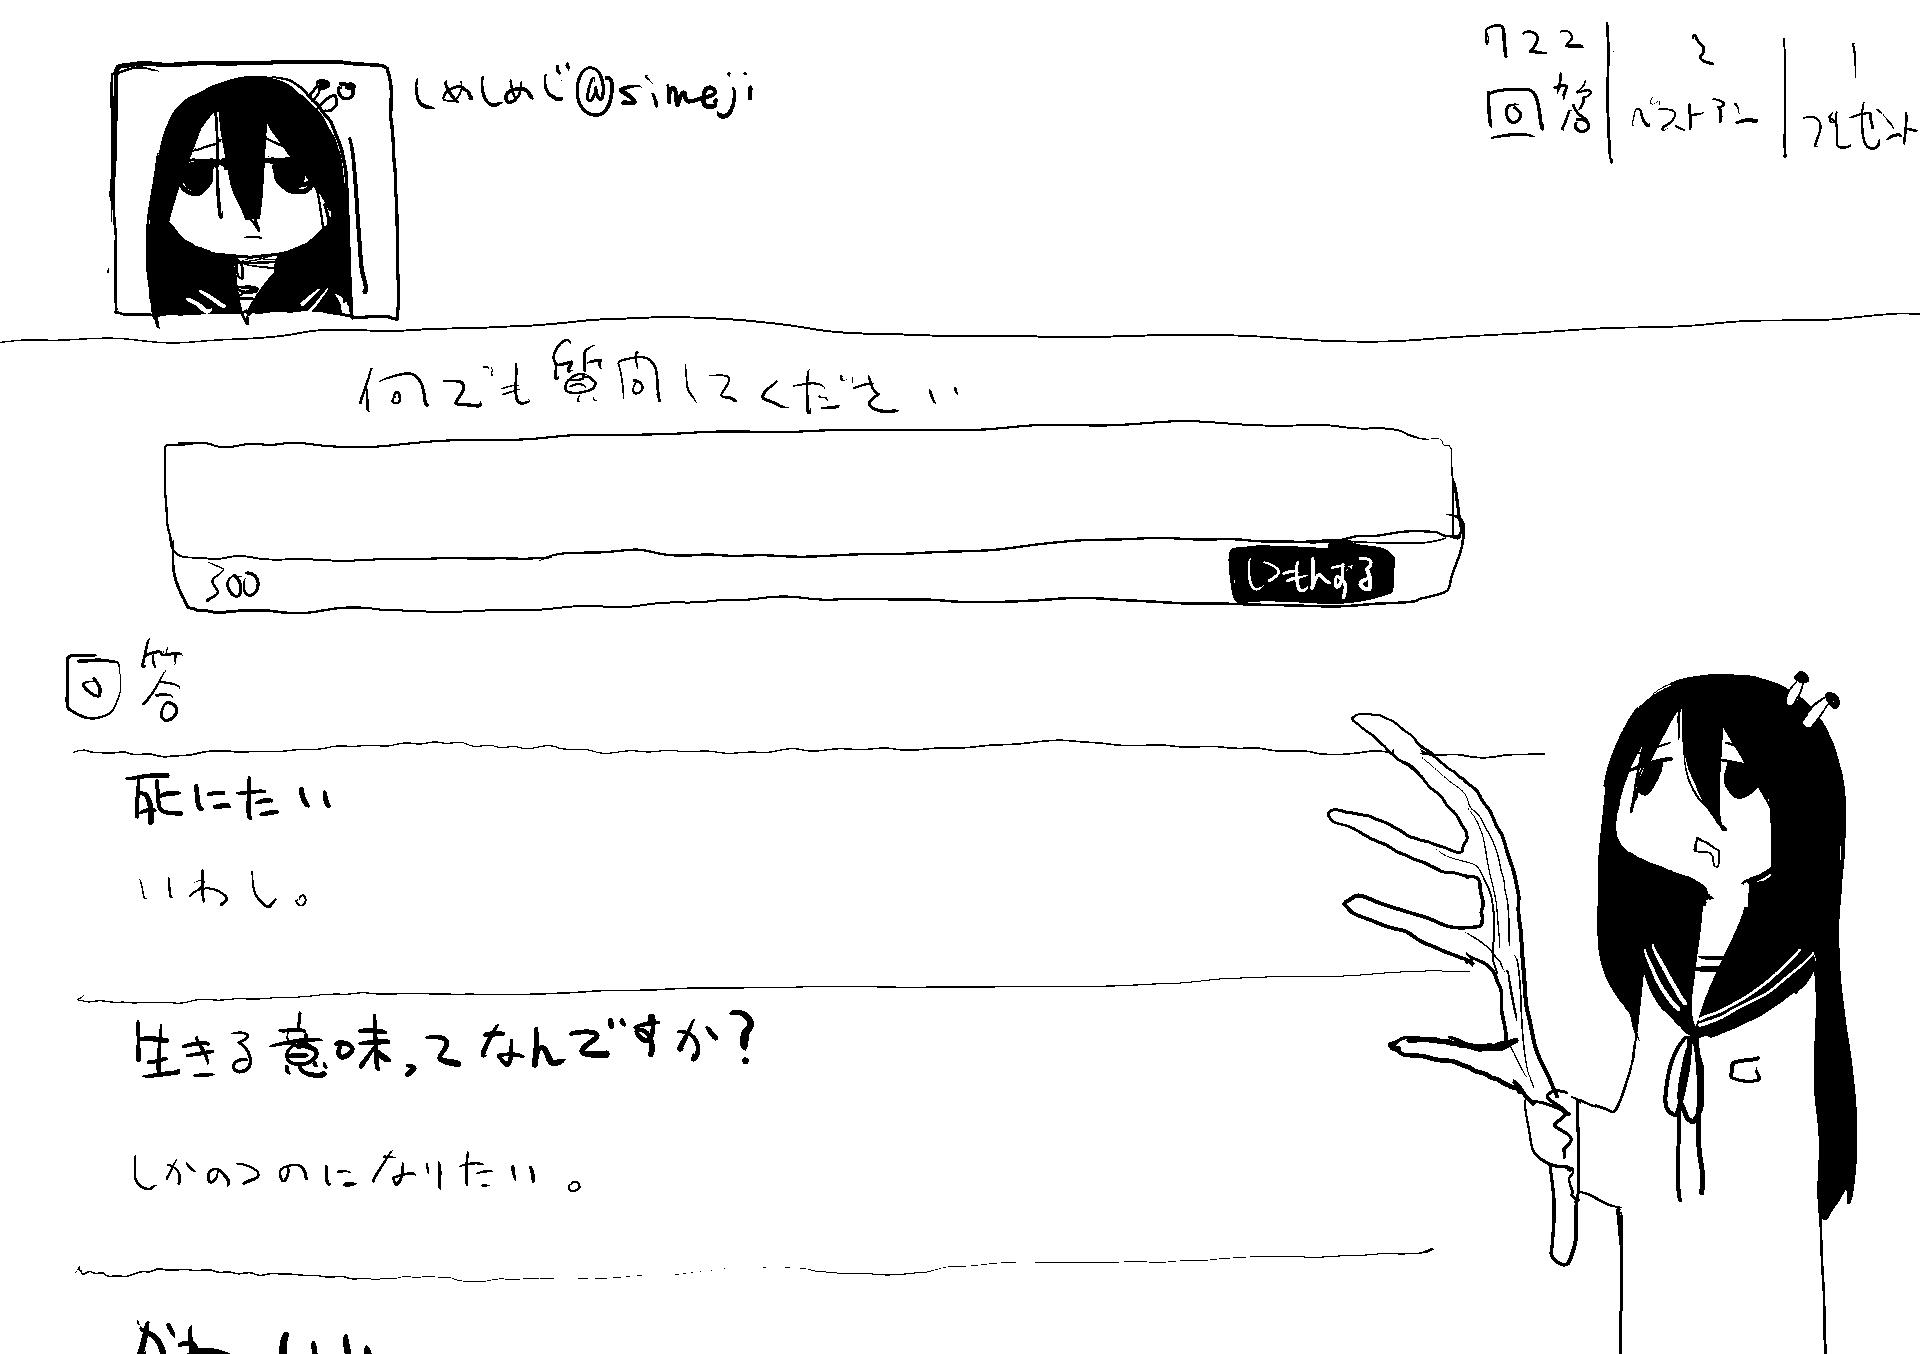 しめしめじ@simeji
722 2 1
回答 ベストアン プレゼント
何でも質問してください
300
しつもんする
回答
死にたい
いわし。
生きる意味ってなんですか?
しかのつのになりたい。